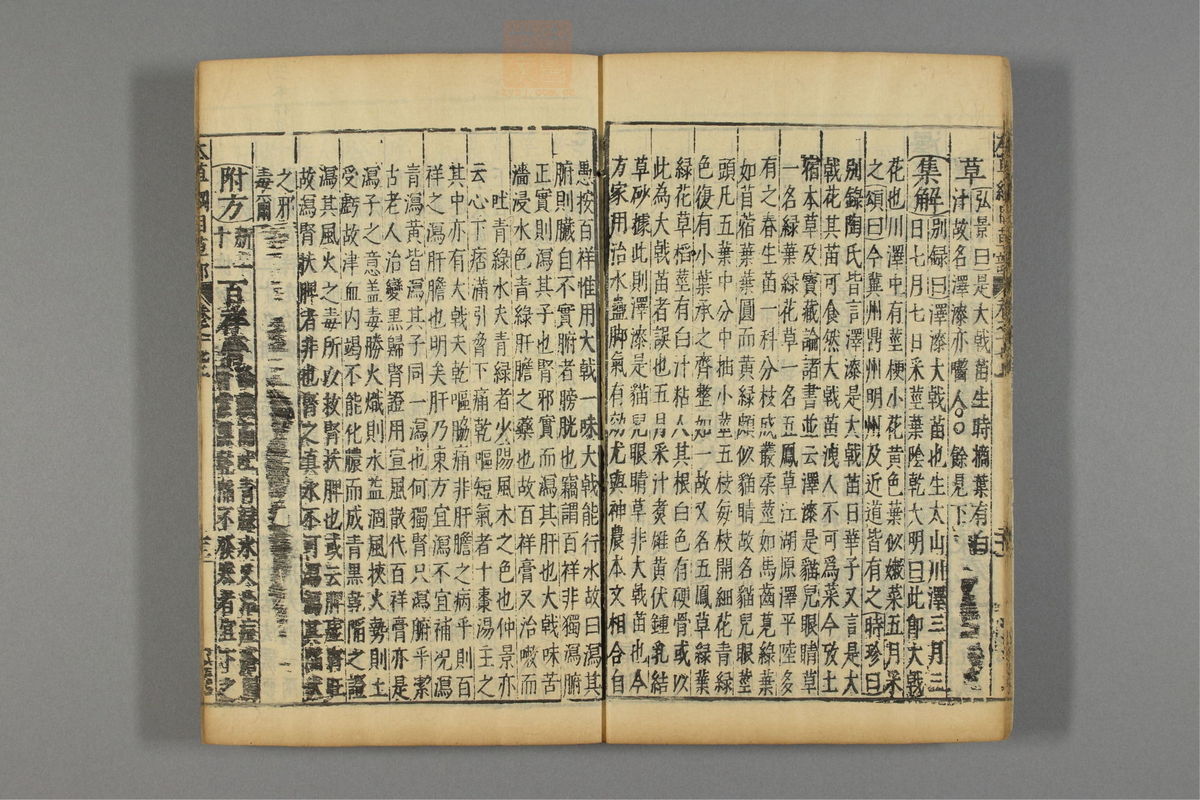 草汁故名澤漆亦囓人○○餘見下
弘景曰是大戟苗生時摘葉有白
集解别錄曰澤漆大戟苗也生太山川澤三月三
日七月七日采莖葉陰乾大明曰此卽大戟
花也川澤中有莖梗小花黃色葉似嫩菜五月采
之頌曰今冀州鼎州明州及近道皆有之時珍曰
别錄陶氏皆言澤漆是大戟苗日華子又言是大
戟花其苗可食然大戟苗洩人不可為菜今攷土
宿本草及寳藏論諸書並云澤漆是貓兒眼睛草
一名綠葉綠花草一名五鳳草江湖原澤平陸多
有之春生苗一科分枝成叢柔莖如馬齒莧綠葉
如苜蓿葉葉圓而黃綠頗似貓睛故名貓兒眼莖
頭凡五葉中分中抽小莖五枝每枝開細花青綠
色復有小葉承之齊整如一故又名五鳳草綠葉
綠花草掐莖有白汁粘人其根白色有硬骨或以
此為大戟苗者誤也五月采汁煑雄黃伏鍾乳結
草砂據此則澤漆是貓兒眼睛草非大戟苗也今
方家用治水蠱脚氣有効尤與神農本文相合自
愚按百祥惟用大戟一味大戟能行水故曰瀉其
腑則臟自不實腑者膀胱也竊謂百祥非獨瀉腑
正實則瀉其子也腎邪實而瀉其肝也大戟味苦
濇浸水色青綠肝膽之藥也故百祥膏又治嗽而
吐青綠水夫青綠者少陽風木之色也仲景亦
云心下痞滿引脅下痛乾嘔短氣者十棗湯主之
其中亦有大戟夫乾嘔脇痛非肝膽之病乎則百
祥之瀉肝膽也明矣肝乃東方宜瀉不宜補况
青瀉黃皆瀉其子同一瀉也何獨腎只瀉腑乎潔
古老人治變黑歸腎證用宣風散代百祥膏亦是
瀉子之意盖毒勝火熾則水益涸風挾火勢則土
受虧故津血内竭不能化膿而成青黑乾陷之證
瀉其風火之毒所以救腎扶脾也或云脾虛腎旺
故瀉腎扶脾者非也腎之真水不可瀉瀉其陷伏
之邪
毒爾
附方